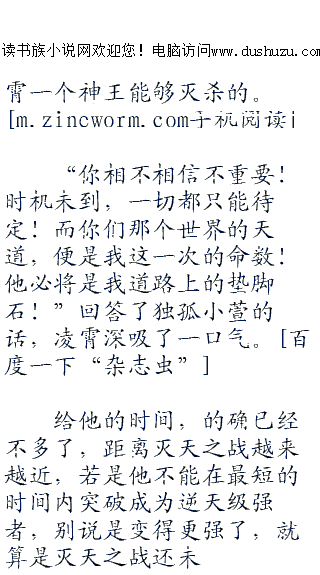 读书族小说网欢迎您！电脑访问www.dushuzu.com
霄一个神王能够灭杀的。
[m.zincworm.com手机阅读i
“你相不相信不重要！
时机未到，一切都只能待
定！而你们那个世界的天
道，便是我这一次的命数！
他必将是我道路上的垫脚
石！”回答了独孤小萱的
话，凌霄深吸了一口气。[百
度一下“杂志虫”]
给他的时间，的确已经
不多了，距离灭天之战越来
越近，若是他不能在最短的
时间内突破成为逆天级强
者，别说是变得更强了，就
算是灭天之战还未